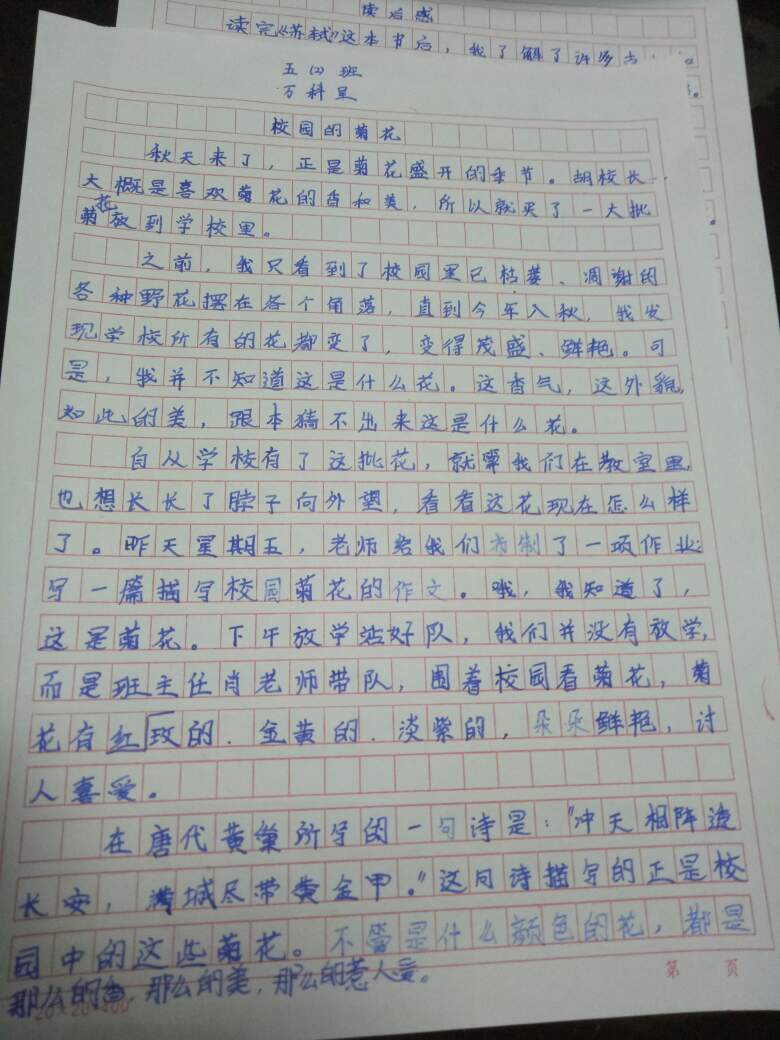 读后感
读完《苏轼》这本书后，我了解了许多古
五（2）班
万科里
校园的菊花
秋天来了，正是菊花盛开的季节。胡校长
大概是喜欢菊花的香和美，所以就买了一大批
菊花放到学校里。
之前，我只看到了校园里已枯萎、凋谢的
各种野花摆在各个角落，直到今年入秋，我发
现学校所有的花都变了，变得茂盛、鲜艳。可
是，我并不知道这是什么花。这香气，这外貌
如此的美，跟本猜不出来这是什么花。
自从学校有了这批花，就算我们在教室里
也想长长了脖子向外望，看看这花现在怎么样
了。昨天星期五，老师给我们布制了一项作业
写一篇描写校园菊花的作文。哦，我知道了，
这是菊花。下午放学站好队，我们并没有放学，
而是班主任肖老师带队，围着校园看菊花，菊
花有红玫的、金黄的、淡紫的，朵朵鲜艳，讨
人喜爱。
在唐代黄巢所写的一句诗是：“冲天相阵透
长安，满城尽带黄金甲。”这句诗描写的正是校
园中的这些菊花。不管是什么颜色的花，都是
那么的香，那么的美，那么的惹人爱。
第 页